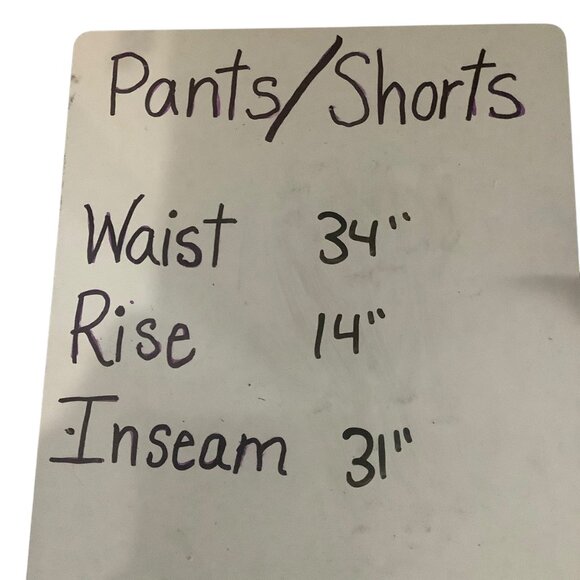 Pants/Shorts
Waist 34"
Rise 14"
Inseam 31"